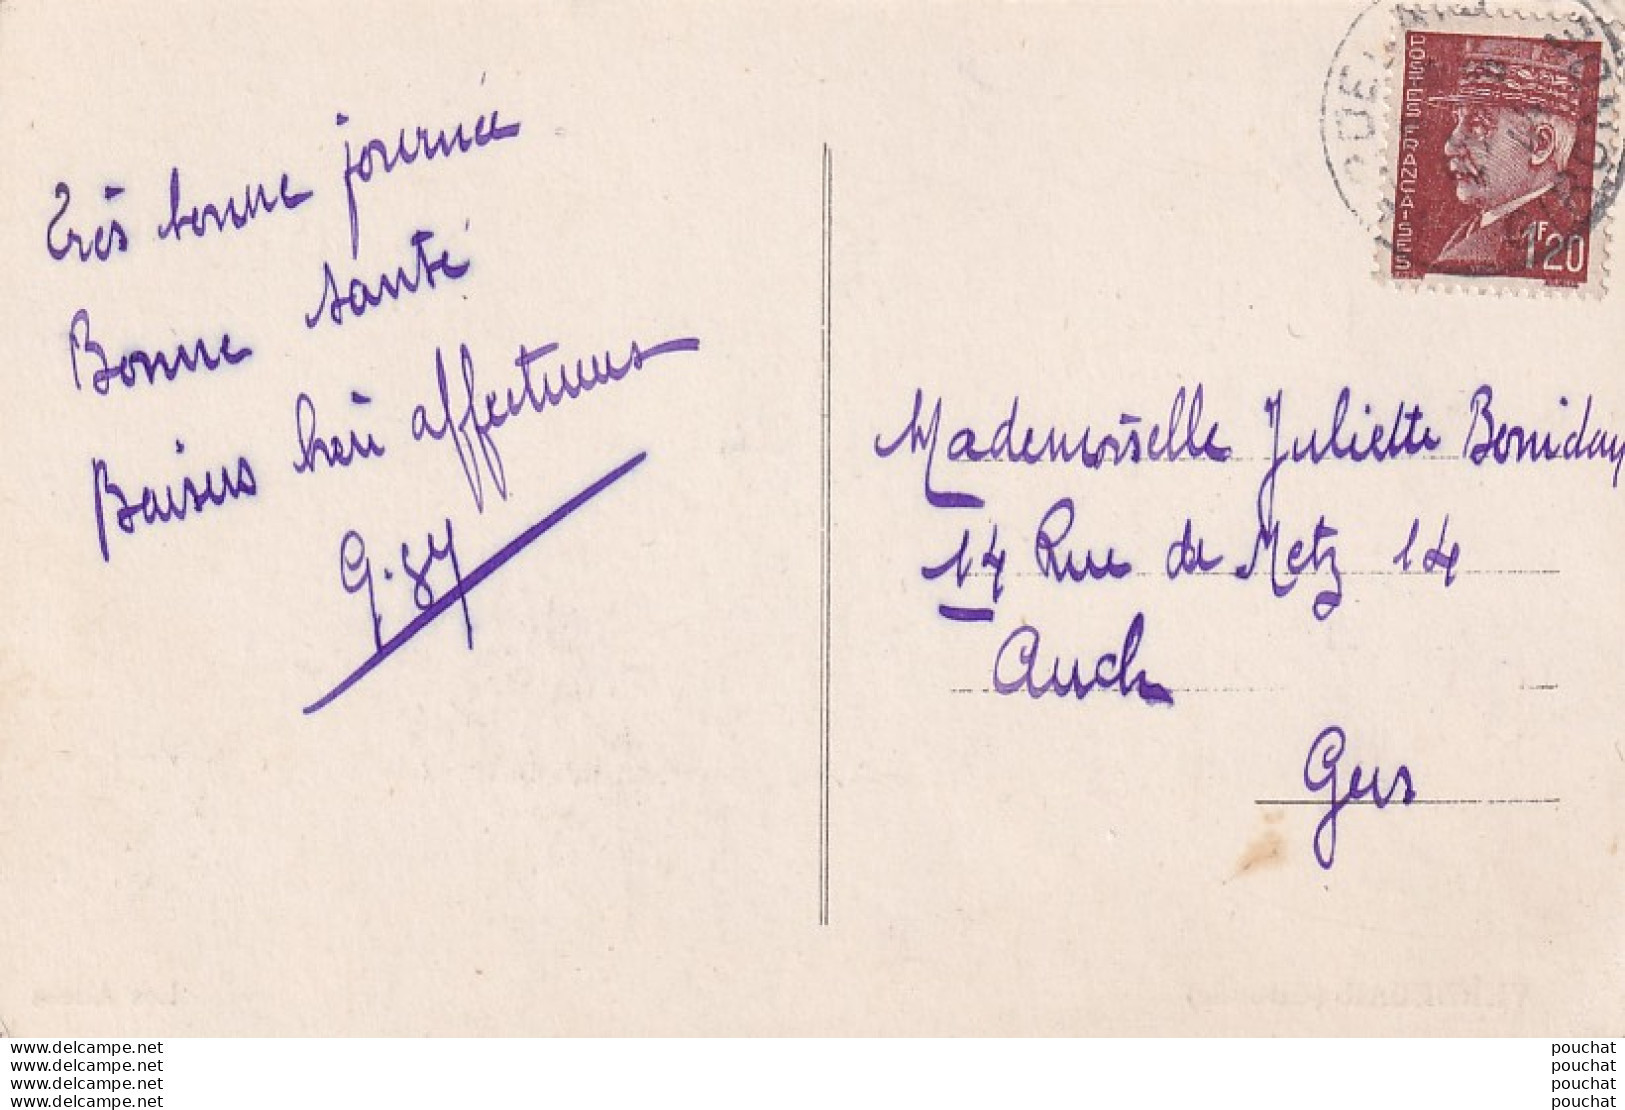 Très bonne journée
Bonne santé
Baisers bien affectueux
G. gy
POSTES FRANÇAISES
1F20
Mademoiselle Juliette
14 Rue de Metz 14
Auch
Gers
www.delcampe.net
www.delcampe.net
www.delcampe.net
www.delcampe.net
pouchat
pouchat
pouchat
pouchat